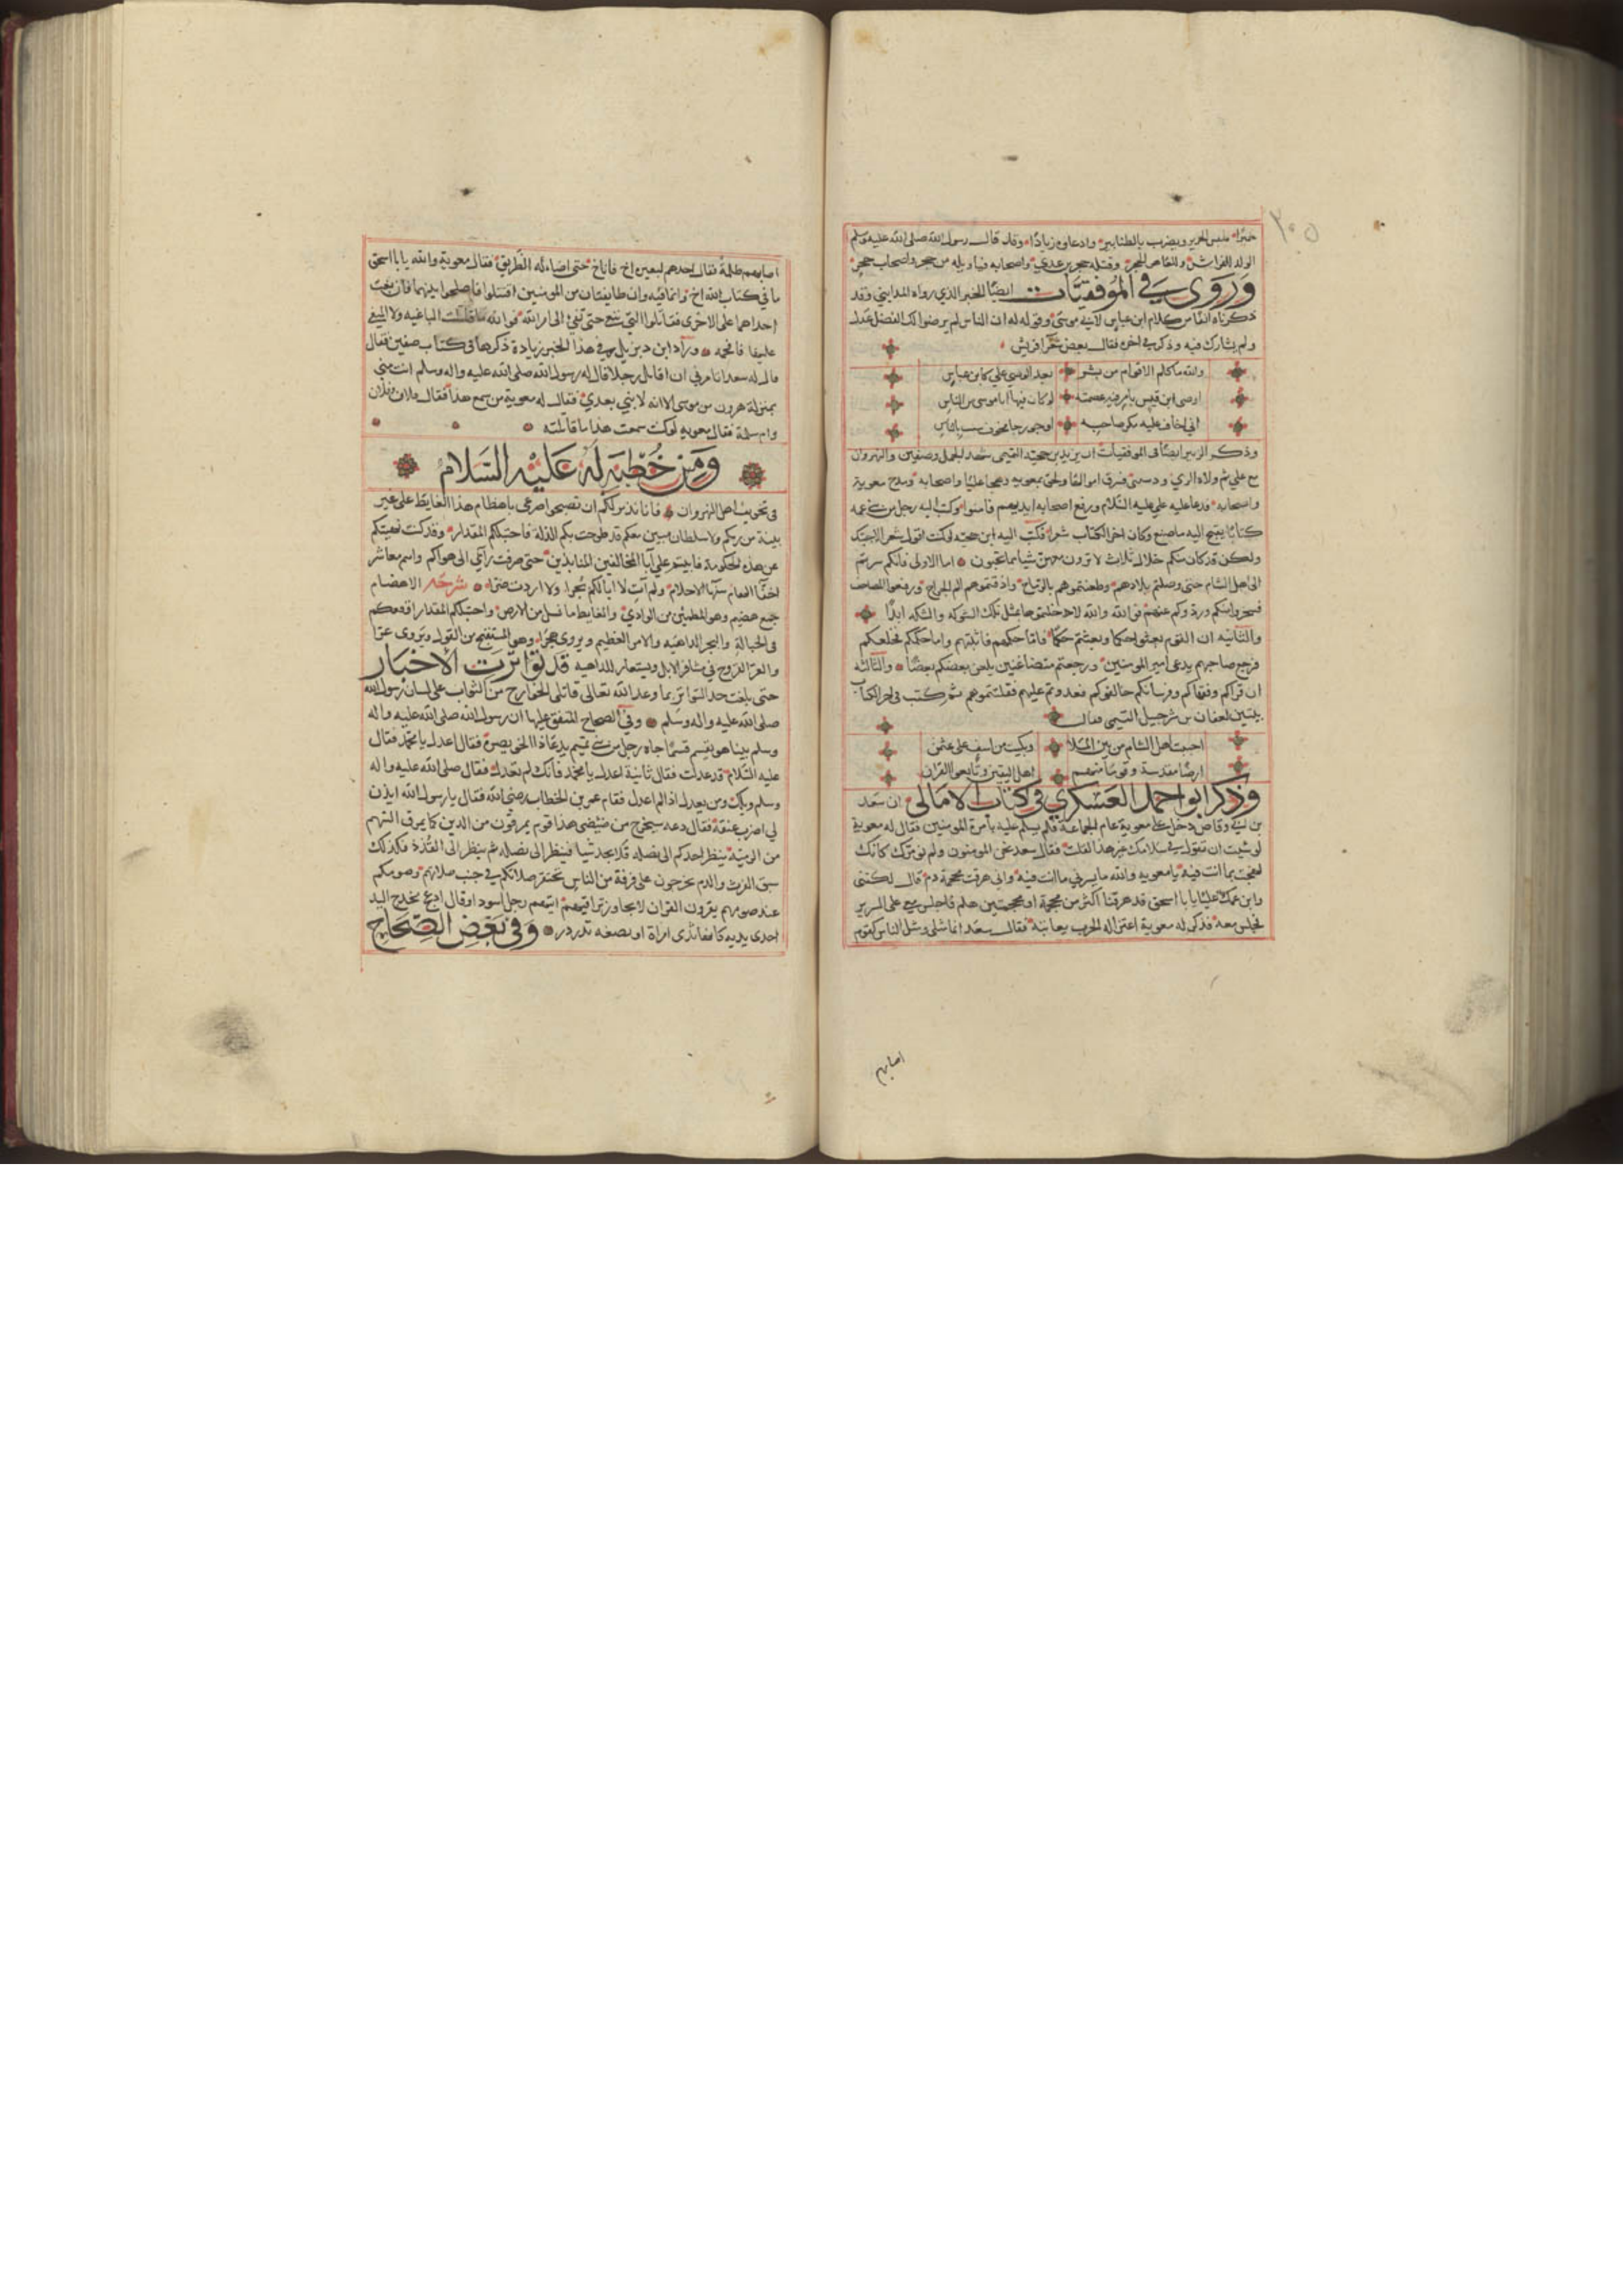 ٢٠٥
خميرا يلبس الحرير ويضرب بالطنابير وادعاوه زيادا وقد قال رسول الله صلى الله عليه وسلم
الولد للفراش وللعاهر الحجر وقتله حجر بن عدي واصحابه فيا ويله من حجر واصحاب حجر
وروى في الموفقيات ايضا الخبر الذي رواه المدايني وقد
ذكرناه انفا من كلام ابن عباس لابي موسى وقوله له ان الناس لم يرضوا بك لفضل عندك
ولم يشارك فيه وذكر في اخره فقال بعض شعرا قريش
والله ما كلم الاقوام من بشر بعد الوصي علي كابن عباس
اوصى ابن قيس بامر فيه عصمته لو كان فيها ابا موسى من الناس
اني اخاف عليه مكر صاحبه ارجو رجا مخوف شيب بالياس
وذكر الزبير ايضا في الموفقيات ان يزيد بن حجيه التيمي شهد الجمل وصفين والنهروان
مع علي ثم ولاه الري ودستبى فسرق اموالها ولحق بمعويه وهجا عليا واصحابه ومدح معوية
واصحابه فدعا عليه علي عليه السلام ورفع اصحابه ايديهم فامنوا وكتب اليه رجل من بني عمه
كتابا يقبح اليه ما صنع وكان اخر الكتاب شعرا فكتب اليه ابن حجيه لو كنت اقول شعرا لاجبتك
ولكن قد كان منكم خلال ثلاث لا ترون معهن شيا مما تحبون اما الاولى فانكم سرتم
الى اهل الشام حتى وصلتم بلادهم وطعنتموهم بالرماح واذقتموهم الم الجراح رفعوا المصاحف
فسخروا منكم وردوكم عنهم فوالله والله لا دخلتموها بمثل تلك الشوكه والشكه ابدا
والثانيه ان القوم بعثوا حكما وبعثتم حكما فاما حكمهم فاثبتهم واما حكمكم فخلعكم
فرجع صاحبهم يدعى امير المومنين ورجعتم متضاغنين يلعن بعضكم بعضا والثالثه
ان قراكم وفقهاكم وفرسانكم خالفوكم فعدوتم عليهم فقتلتموهم ثم كتب في اخر الكتاب
بيتين لعفان بن شرحبيل التيمي فقال
احببت اهل الشام من بين الملا وبكيت من اسف على عثمن
ارضا مقدسة وقوما منهم اهل اليقين وتابعوا القران
وذكر ابو احمد العسكري في كتاب الامالي ان سعد
بن ابي وقاص دخل على معوية عام الجماعة فلم يسلم عليه بامرة المومنين فقال له معوية
لو شيت ان تقول في سلامك غير هذا لقلت فقال سعد نحن المومنون ولم نومرك كانك
لعجبت بما انت فيه يا معويه والله ما يسرني ما انت فيه واني هرقت محجمة دم قال لكنني
وابن عمك عليا يا با اسحق قد هرقنا اكثر من محجمة او محجمتين هلم فاجلس معي على السرير
فجلس معه فذكر له معوية اعتزاله الحرب يعاتبه فقال سعد انما مثلي ومثل الناس كقوم
اصابهم
اصابهم ظلمة فقال احدهم لبعيره اخ فاناخ حتى اضاء له الطريق فقال معوية والله يا با اسحق
ما في كتاب الله اخ وانما فيه وان طايفتان من المومنين اقتتلوا فاصلحوا بينهما فان بغت
احداهما على الاخرى فقاتلوا التي تبغي حتى تفي الى امر الله فوالله ما قاتلت الباغيه ولا المبغي
عليها فافحمه وزاد ابن ديزيل في هذا الخبر زيادة ذكرها في كتاب صفين فقال
قال له سعد اتامرني ان اقاتل رجلا قال له رسول الله صلى الله عليه واله وسلم انت مني
بمنزلة هرون من موسى الا انه لا نبي بعدي فقال له معوية من سمع هذا فقال فلان وفلان
وام سلمة فقال معويه لو كنت سمعت هذا ما قاتلته
ومن خطبة له عليه السلام
في تخويف اهل النهروان فانا نذير لكم ان تصبحوا صرعى باهضام هذا الغايط على غير
بينة من ربكم ولا سلطان مبين معكم قد طوحت بكم الدار واحتبلكم المقدار وقد كنت نهيتكم
عن هذه الحكومة فابيتم علي ابا المخالفين المنابذين حتى صرفت رايي الى هواكم وانتم معاشر
اخفا الهام سفها الاحلام ولم ات لا ابا لكم بجرا ولا اردت ضرا شرحه الاهضام
جمع هضيم وهو المطمئن من الوادي والغايط ما سفل من الارض واحتبلكم المقدار اوقعكم
في الحبالة والبجر الداهيه والامر العظيم ويروى هجرا وهو المستقبح من القول ويروى عرا
والعر القروح في مشافر الابل ويستعار للداهية قد تواترت الاخبار
حتى بلغت حد التواتر بما وعد الله تعالى قاتلي الخوارج من الثواب على لسان رسول الله
صلى الله عليه واله وسلم وفي الصحاح المتفق عليها ان رسول الله صلى الله عليه واله
وسلم بينا هو يقسم قسما جاه رجل من بني تميم يدعا ذا الخويصرة فقال اعدل يا محمد فقال
عليه السلام قد عدلت فقال ثانية اعدل يا محمد فانك لم تعدل فقال صلى الله عليه واله
وسلم ويلك ومن يعدل اذا لم اعدل فقام عمر بن الخطاب رضي الله فقال يا رسول الله ايذن
لي اضرب عنقه فقال دعه سيخرج من ضيضي هذا قوم يمرقون من الدين كما يمرق السهم
من الرمية ينظر احدكم الى نصله فلا يجد شيا فينظر الى نضيه ثم ينظر الى القذذ فكذلك
سبق الفرث والدم يخرجون على فرقة من الناس تحتقر صلاتكم في جنب صلاتهم وصومكم
عند صومهم يقرون القران لا يجاوز تراقيهم ايتهم رجل اسود او قال ادعج مخدج اليد
احدى يديه كانها ثدي امراة او بضعه تدردر وفي بعض الصحاح